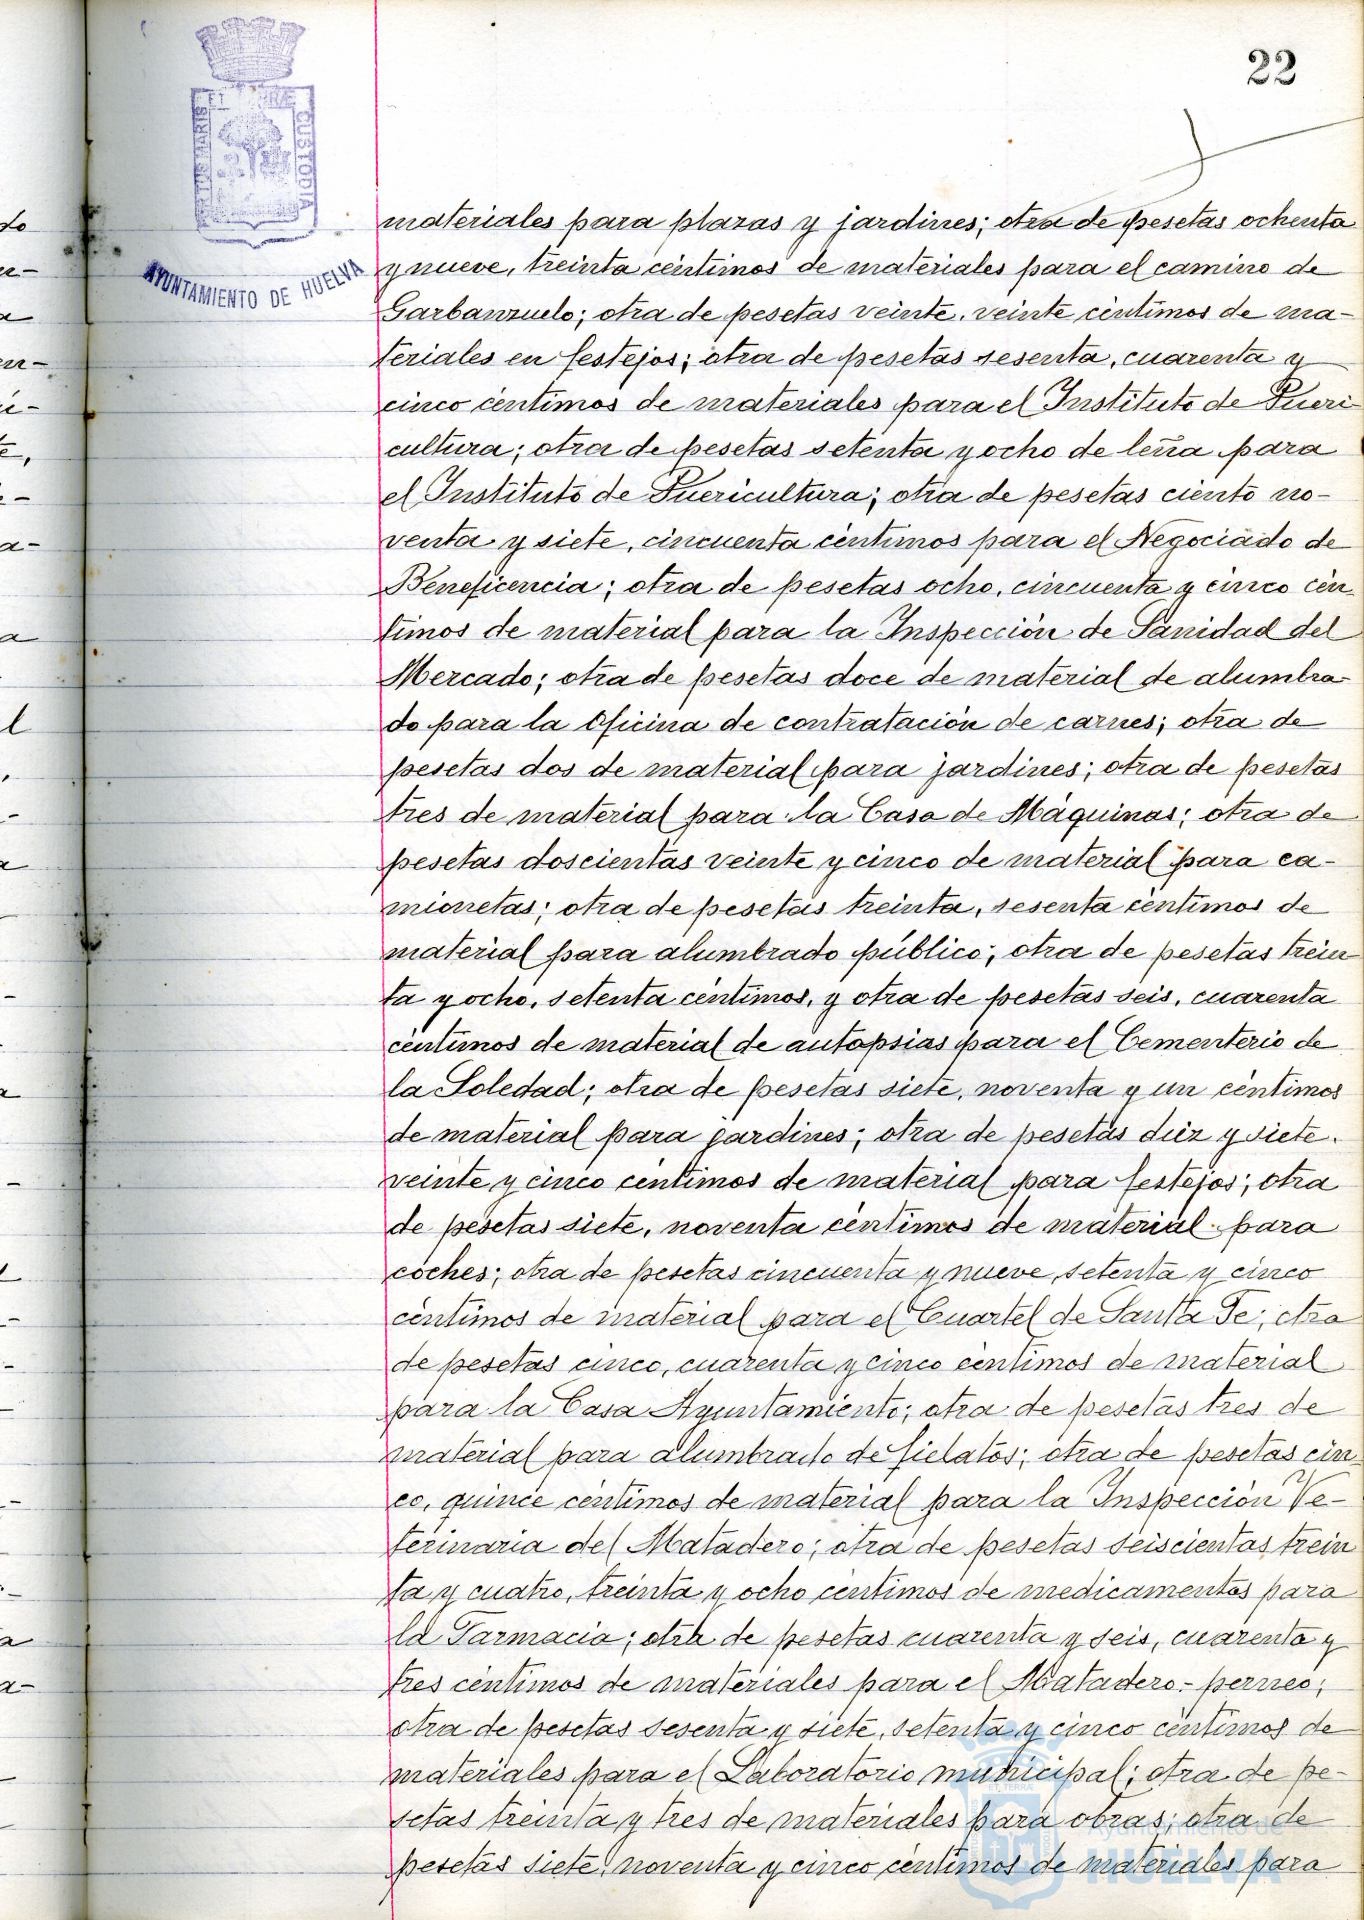 22
ET TERRÆ
PORTUS MARIS
CUSTODIA
AYUNTAMIENTO DE HUELVA
materiales para plazas y jardines; otra de pesetas ochenta
y nueve, treinta céntimos de materiales para el camino de
Garbanzuelo; otra de pesetas veinte, veinte céntimos de ma-
teriales en festejos; otra de pesetas sesenta, cuarenta y
cinco céntimos de materiales para el Instituto de Pueri-
cultura; otra de pesetas setenta y ocho de leña para
el Instituto de Puericultura; otra de pesetas ciento no-
venta y siete, cincuenta céntimos para el Negociado de
Beneficencia; otra de pesetas ocho, cincuenta y cinco cén-
timos de material para la Inspección de Sanidad del
Mercado; otra de pesetas doce de material de alumbra-
do para la Oficina de contratación de carnes; otra de
pesetas dos de material para jardines; otra de pesetas
tres de material para la Casa de Máquinas; otra de
pesetas doscientas veinte y cinco de material para ca-
mionetas; otra de pesetas treinta, sesenta céntimos de
material para alumbrado público; otra de pesetas trein
ta y ocho, setenta céntimos, y otra de pesetas seis, cuarenta
céntimos de material de autopsias para el Cementerio de
la Soledad; otra de pesetas siete, noventa y un céntimos
de material para jardines; otra de pesetas diez y siete,
veinte y cinco céntimos de material para festejos; otra
de pesetas siete, noventa céntimos de material para
coches; otra de pesetas cincuenta y nueve, setenta y cinco
céntimos de material para el Cuartel de Santa Fe; otra
de pesetas cinco, cuarenta y cinco céntimos de material
para la Casa Ayuntamiento; otra de pesetas tres de
material para alumbrado de fielatos; otra de pesetas cin
co, quince céntimos de material para la Inspección Ve-
terinaria del Matadero; otra de pesetas seiscientas trein
ta y cuatro, treinta y ocho céntimos de medicamentos para
la Farmacia; otra de pesetas cuarenta y seis, cuarenta y
tres céntimos de materiales para el Matadero.- perneo;
otra de pesetas sesenta y siete, setenta y cinco céntimos de
materiales para el Laboratorio municipal; otra de pe-
setas treinta y tres de materiales para obras; otra de
pesetas siete, noventa y cinco céntimos de materiales para
Ayuntamiento de
HUELVA